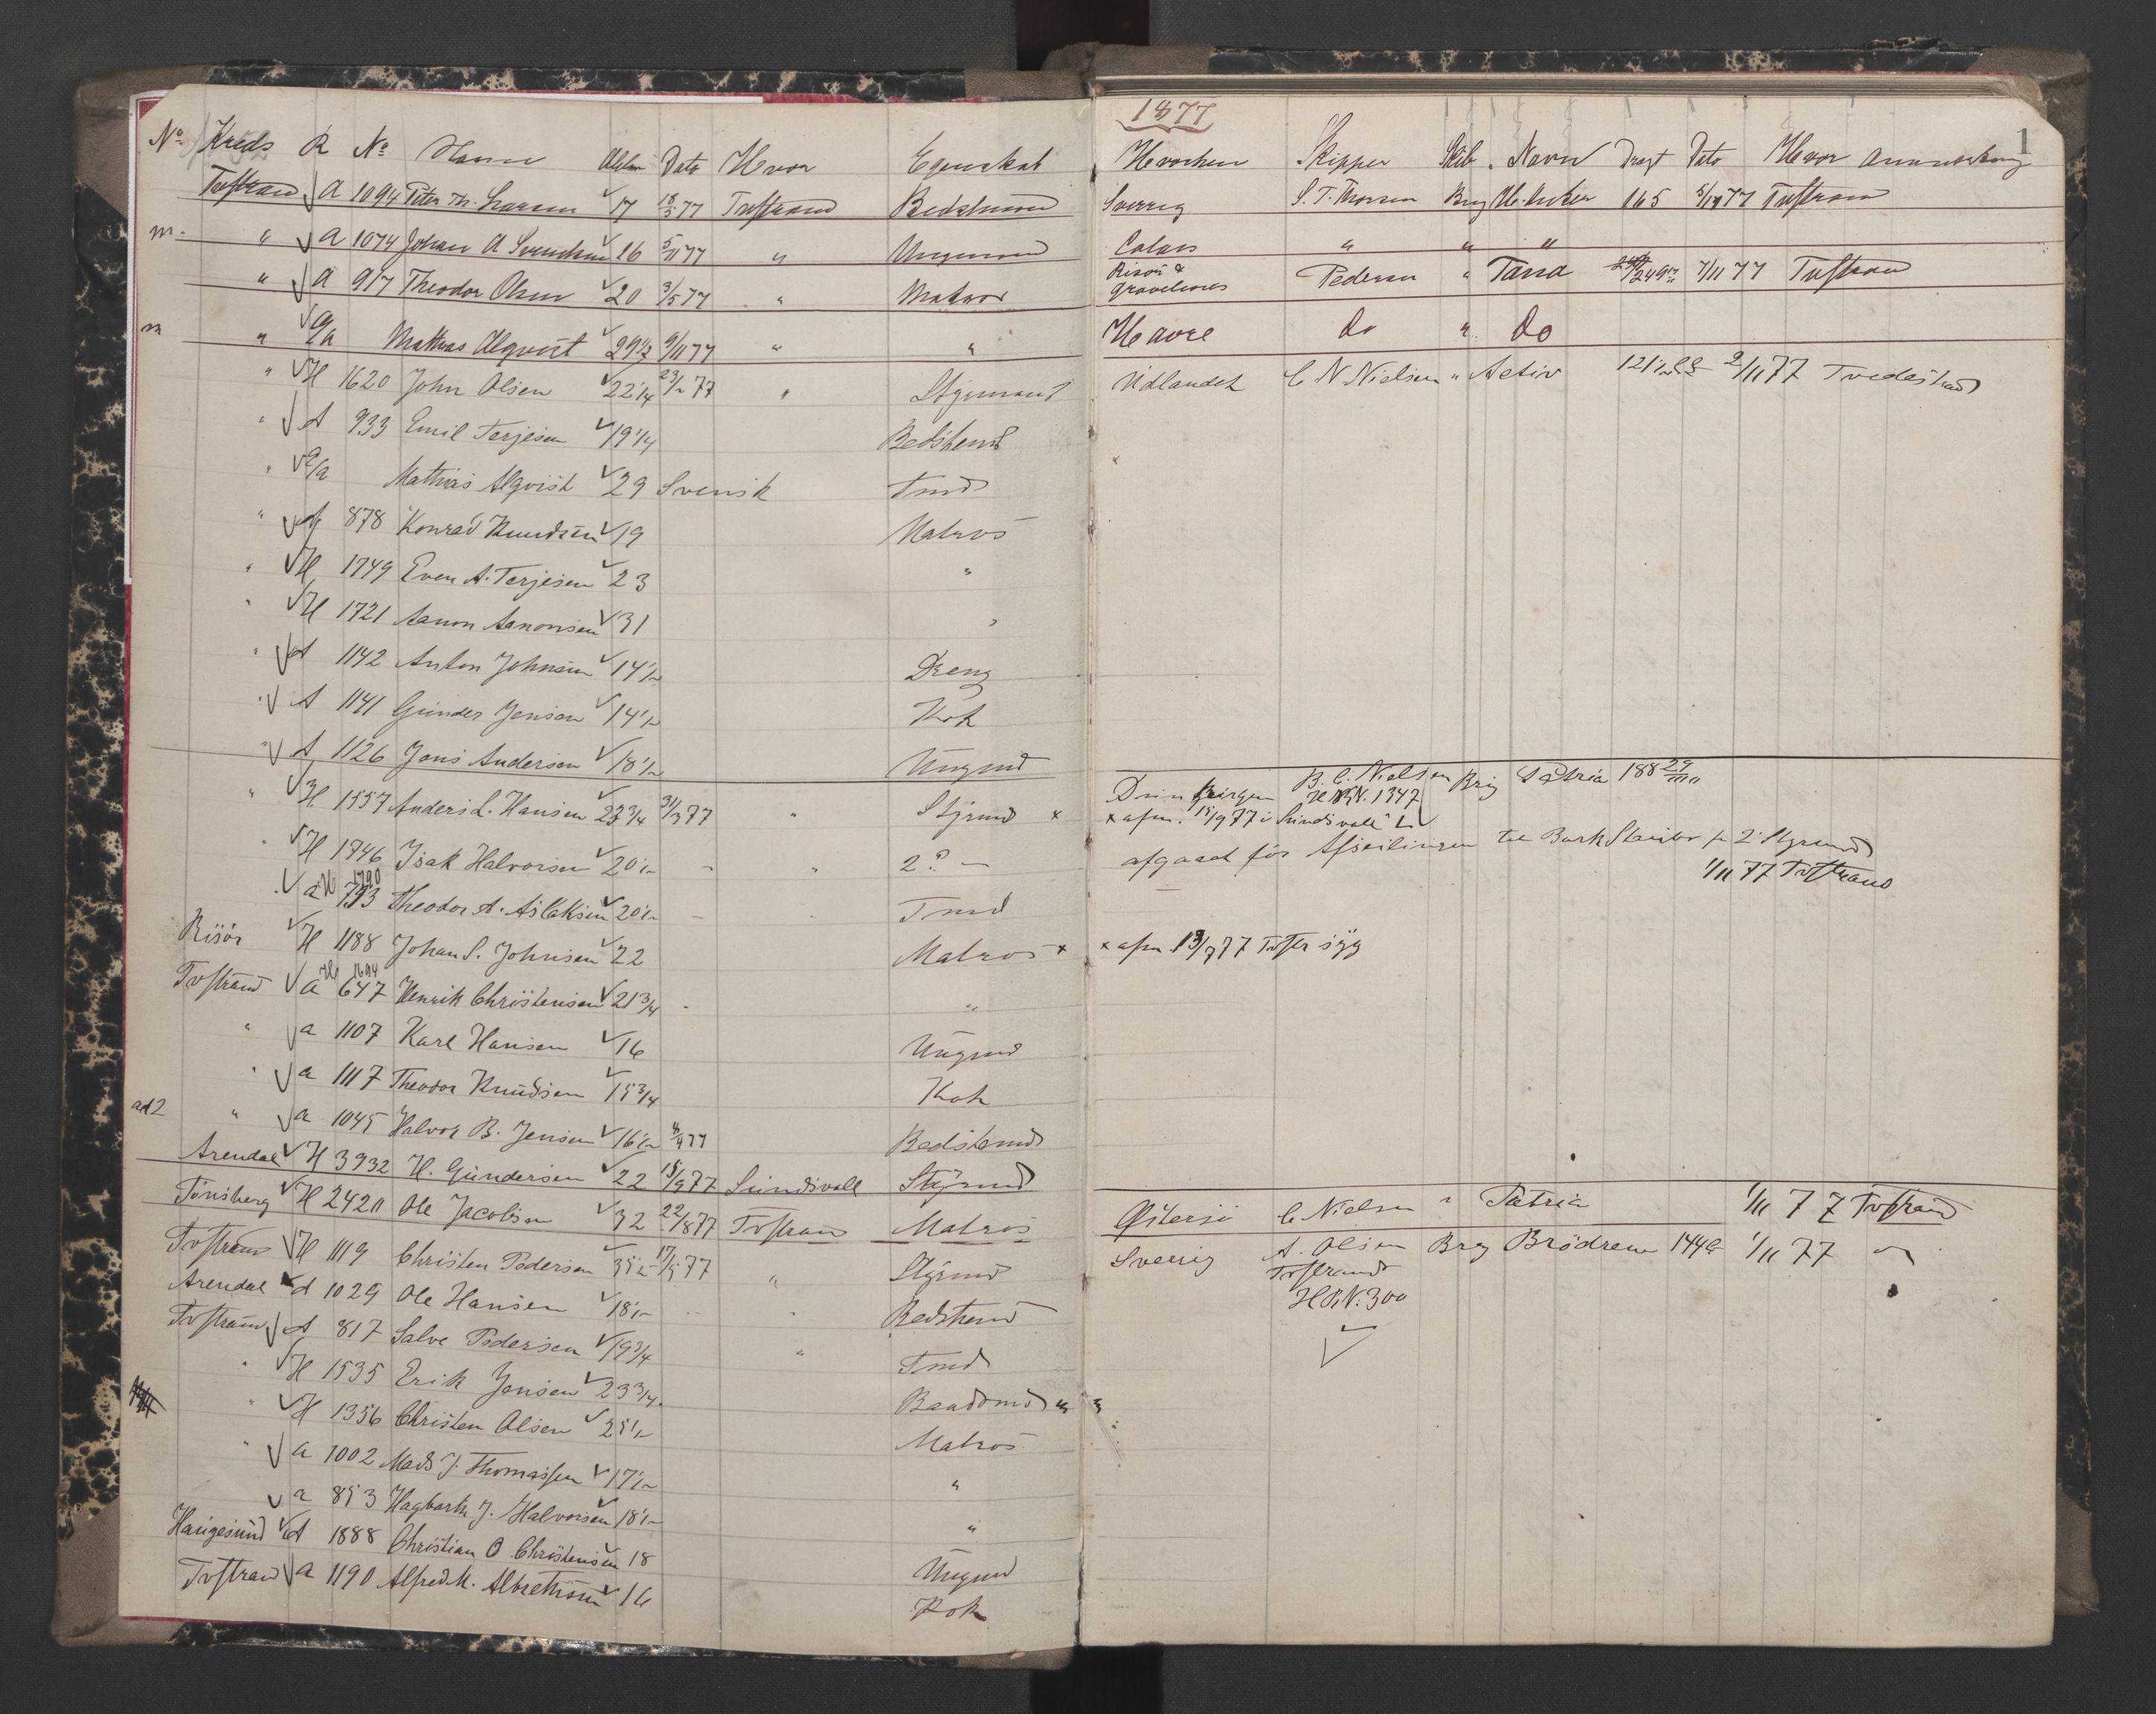 No Kreds R No Navn Alder Dato Hvor Egenskab
Tvstrand A 1094 Peter Th. Larsen 17 18/3 77 Tvstrand Bedstmand
m. " A 1074 Johan A Svendsen 16 5/11 77 " Ungmand
" A 917 Theodor Olsen 20 3/5 77 " Matros
m " Mathias Alqvist 29 1/2 9/11 77 " "
" H 1620 John Olsen 22 1/4 23/2 77 " Styrmand
" A 933 Emil Terjesen 19 1/4 Bedstemd
" Mathias Alqvist 29 Svensk Tmd
" A 878 Konrad Knudsen 19 Matros
" H 1749 Even A. Terjesen 23 "
" H 1721 Aanon Aanonsen 31 "
" A 1142 Anton Johnsen 14 1/2 Dreng
" A 1141 Gunder Jensen 14 1/2 Kok
" A 1126 Jens Andersen 18 1/2 Ungmd
" H 1557 Anders L. Hansen 23 3/4 31/3 77 " Styrmd x
" H 1746 Isak Halvorsen 20 1/2 - " 2? —
" a 793 H 1790 Theodor A. Aslaksen 20 1/2 - " Tmd
Risør H 1188 Johan S. Johnsen 22 Matros x
Tvstrand a 647 H 1694 Henrik Christensen 21 3/4 - "
" a 1107 Karl Hansen 16 Ungmd
" a 1117 Theodor Knudsen 15 3/4 Kok
ad 2 " a 1045 Halvor B. Jensen 16 1/2 4/4 77 Bedstemd
Arendal H 3932 H. Gundersen 22 15/9 77 Sundsvall Styrmd
Tönsberg H 2420 Ole Jacobsen 32 22/8 77 Tvstrand Matros
Tvstrand H 1119 Christen Pedersen 35 1/2 17/5 77 " Styrmd
Arendal A 1029 Ole Hansen 18 1/2 " Bedstemd
Tvstrand A 817 Salve Pedersen 19 3/4 " Tmd
" H 1535 Erik Jensen 23 3/4 Baadsmd
" H 1356 Christen Olsen 25 1/2 Matros
" a 1002 Mads J. Thomassen 17 1/2 "
a 853 Hagbarth J. Halvorsen 18 1/2 "
Haugesund A 1888 Christian O Christensen 18 Ungmd
Tvstrand a 1190 Alfred M. Albretsen 16 Kok
1877
1
Hvorhen Skipper Skib. Navn Drægt Dato Hvor Anmærkning
Sverrig S. T. Thorsen Brig 165 5/11 77 Tvstrand
Calais " " "
Risör & Gravelines Pedersen " 249 7/11 77 Tvstrand
Havre do " do
Udlandet C N Nielsen " Activ 121 1/2 2/11 77 Tvedestrand
B. C. Nielsen Brig Patria 188
H N. 1347
x afm. 15/9 77 i Sundsvall
afgaaet før Afseilingen til Bark 2 Styrmd
1/11 77 Tvstrand
x afm 13/7 77 Tvstr syg
Østersø C Nielsen " Patria 1/11 77 Tvstrand
Sverrig A. Olsen Brig Brödrene 144 1/11 77 "
Tvstrand
H R N: 300